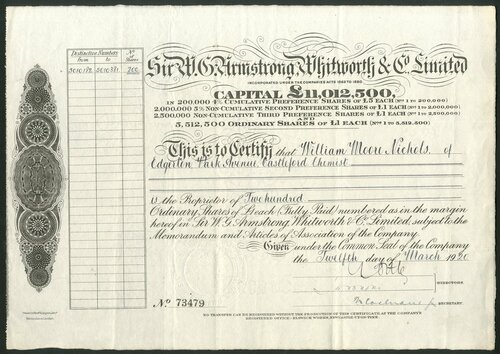 Distinctive Numbers
from to
No of Shares
5010182 5010381 200
Sir W.G. Armstrong, Whitworth & Co. Limited
INCORPORATED UNDER THE COMPANIES ACTS 1862 TO 1880.
CAPITAL £11,012,500,
IN 200,000 4% CUMULATIVE PREFERENCE SHARES OF £5 EACH (No 1 TO 200,000)
2,000,000 5% NON-CUMULATIVE SECOND PREFERENCE SHARES OF £1 EACH (No 1 TO 2,000,000)
2,500,000 NON-CUMULATIVE THIRD PREFERENCE SHARES OF £1 EACH (No 1 TO 2,500,000)
AND
5,512,500 ORDINARY SHARES OF £1 EACH (No 1 TO 5,512,500)
This is to Certify that William Moore Nichols of
Edgerton Park Avenue, Castleford, Chemist
is the Proprietor of Two hundred
Ordinary Shares of £1 each (Fully Paid) numbered as in the margin
hereof in Sir W.G. Armstrong, Whitworth & Co. Limited, subject to the
Memorandum and Articles of Association of the Company.
Given under the Common Seal of the Company
the Twelfth day of March 1920
DIRECTORS.
No 73479
SECRETARY.
NO TRANSFER CAN BE REGISTERED WITHOUT THE PRODUCTION OF THIS CERTIFICATE AT THE COMPANY'S
REGISTERED OFFICE - ELSWICK WORKS, NEWCASTLE-UPON-TYNE.